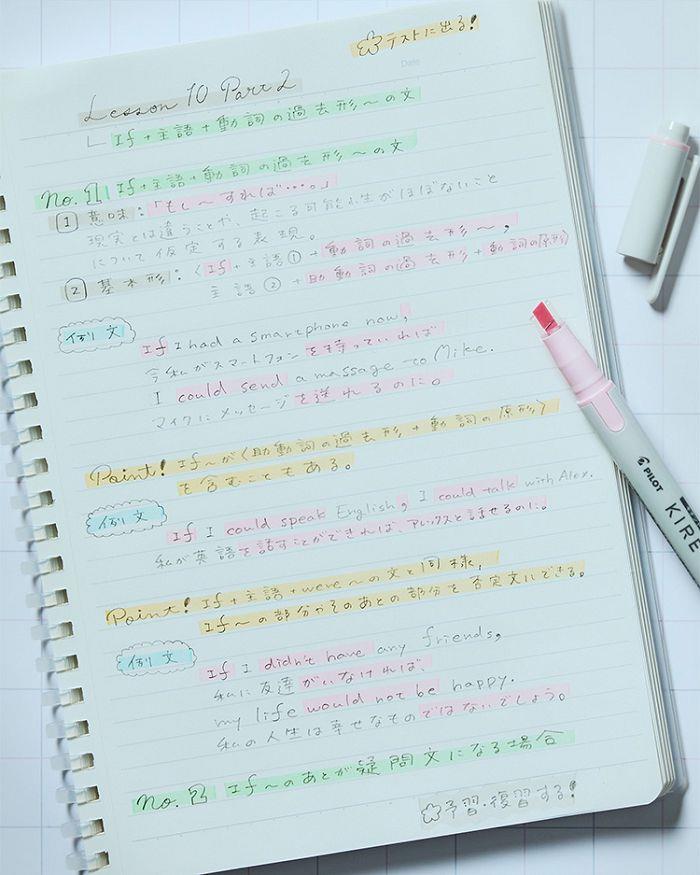 ✿テストに出る!
Date
Lesson 10 Part 2
└ If+主語+動詞の過去形～の文
No.1 If+主語+動詞の過去形～の文
1 意味:「もし～すれば…。」
現実とは違うことや、起こる可能性がほぼないこと
について仮定する表現。
2 基本形:〈If+主語①+動詞の過去形～,
主語②+助動詞の過去形+動詞の原形〉
例文
If I had a smartphone now,
今私がスマートフォンを持っていれば
I could send a massage to Mike.
マイクにメッセージを送れるのに。
Point! If～が〈助動詞の過去形+動詞の原形〉
を含むこともある。
例文
If I could speak English, I could talk with Alex.
私が英語を話すことができれば、アレックスと話せるのに。
Point! If+主語+were～の文と同様,
If～の部分やそのあとの部分を否定文にできる。
例文
If I didn't have any friends,
私に友達がいなければ、
my life would not be happy.
私の人生は幸せなものではないでしょう。
No.2 If～のあとが疑問文になる場合
✿予習・復習する!
PILOT
KIRE